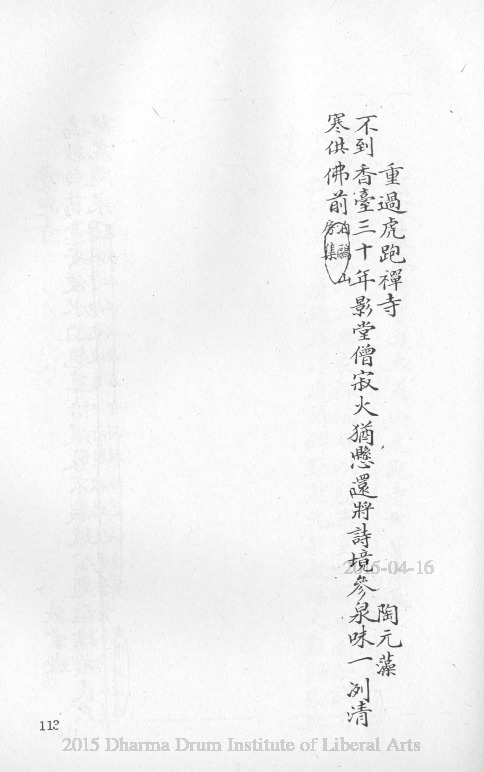 重過虎跑禪寺 陶元藻
不到香臺三十年影堂僧寂火猶懸還將詩境參泉味一冽清
寒供佛前 泊鷗山房集
112
2015-04-16
2015 Dharma Drum Institute of Liberal Arts